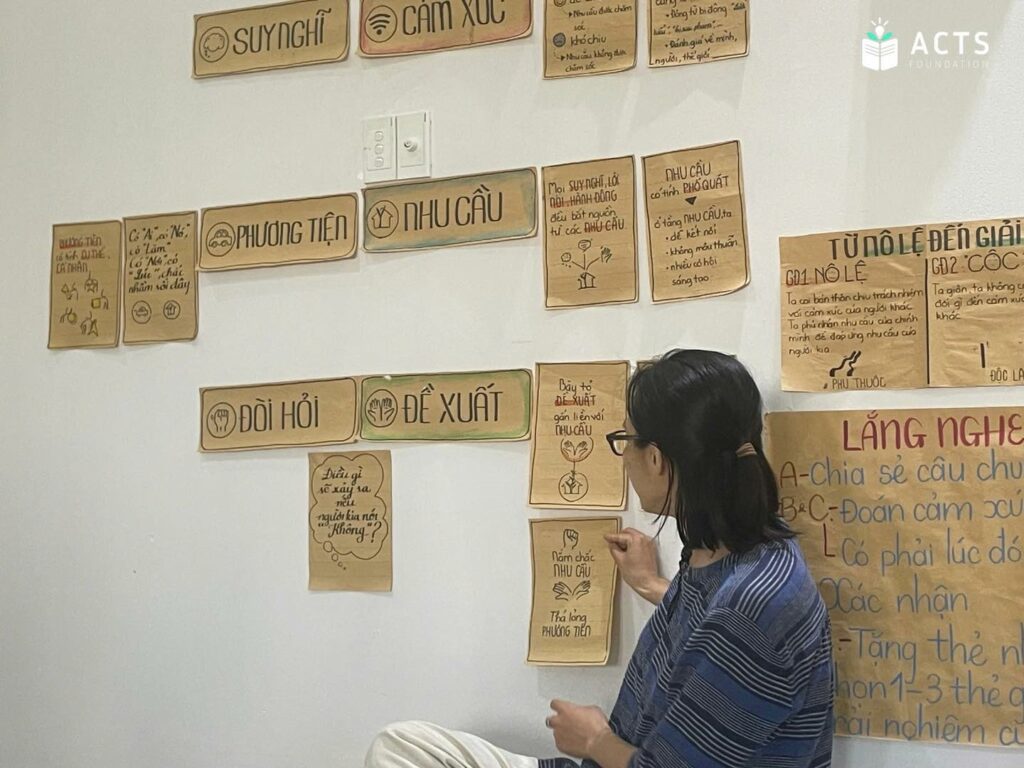 SUY NGHĨ
CẢM XÚC
Nhu cầu được chăm
sóc
khó chịu
Nhu cầu không được
chăm sóc
Động từ bị động
Đánh giá về mình,
người, thế giới
ACTS
FOUNDATION
PHƯƠNG TIỆN
có tính CỤ THỂ,
CÁ NHÂN
Có "Ai", có "Nó",
có "Làm"
có "Nơi", có
"Lúc", chải
nhằm sới dây
PHƯƠNG TIỆN
NHU CẦU
Mọi SUY NGHĨ, LỜI
NÓI, HÀNH ĐỘNG
đều bắt nguồn
từ các NHU CẦU.
NHU CẦU
có tính PHỔ QUÁT
ở tầng NHU CẦU, ta
• dễ kết nối
• không mâu thuẫn
• nhiều cơ hội
sáng tạo
TỪ NÔ LỆ ĐẾN GIẢI
GĐ1 NÔ LỆ
Ta coi bản thân chịu trách nhiệm
với cảm xúc của người khác
Ta phủ nhận nhu cầu của chính
mình để đáp ứng nhu cầu của
người kia
PHỤ THUỘC
GĐ2: "CÓC
Ta giận, ta không
đối gì đến cảm xúc
khác
ĐỘC LẬ
ĐÒI HỎI
ĐỀ XUẤT
Bày tỏ
ĐỀ XUẤT
gắn liền với
NHU CẦU
Điều gì
sẽ xảy ra
nếu
người kia nói
"Không"?
Nắm chắc
NHU CẦU
Thả lỏng
PHƯƠNG TIỆN
LẮNG NGHE
A-Chia sẻ câu chu
B&C-Đoán cảm xú
Có phải lúc đó
Xác nhận
-Tặng thẻ nh
họn 1-3 thẻ
rải nghiệm